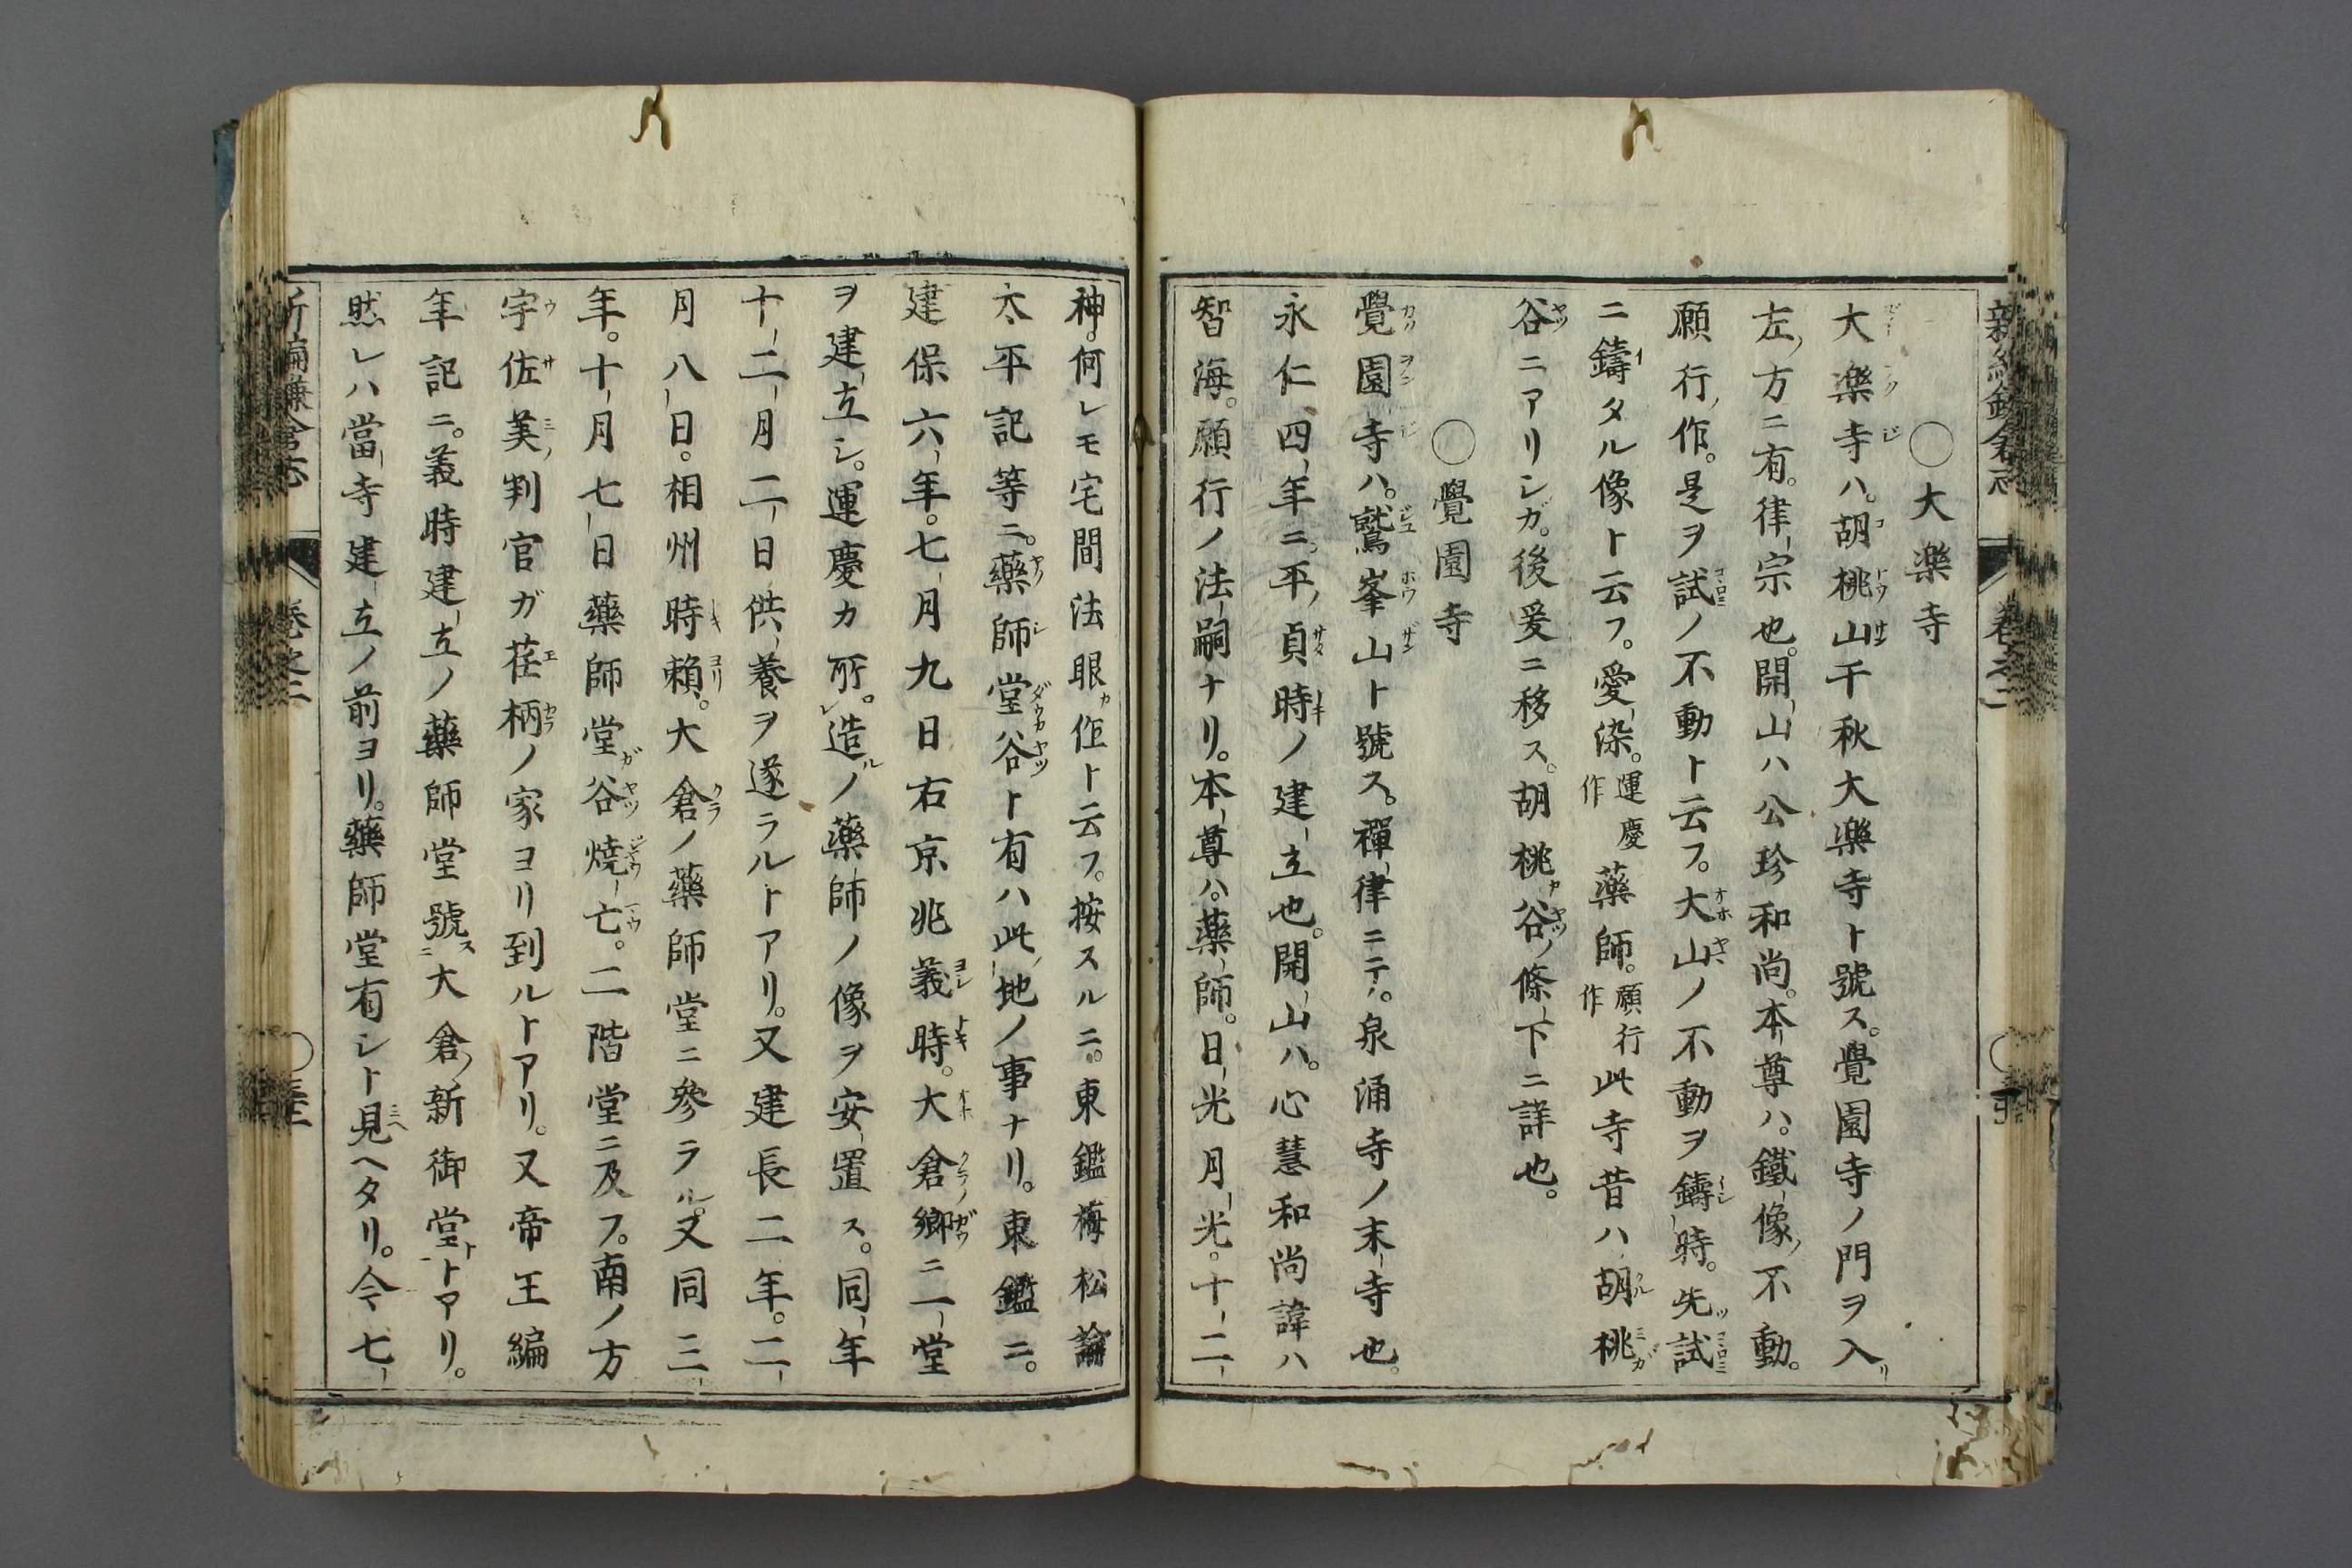 新編鎌倉志
卷之二
○大楽寺
大楽寺ハ。胡桃山千秋大楽寺ト號ス。覺園寺ノ門ヲ入
左ノ方ニ有。律宗也。開山ハ公珍和尚。本尊ハ。鐵像ノ不動。
願行ノ作。是ヲ試ノ不動ト云フ。大山ノ不動ヲ鑄シ時。先試
ニ鑄タル像ト云フ。愛染。運慶作藥師。願行作此寺昔ハ胡桃
谷ニアリシガ。後爰ニ移ス。胡桃谷ノ條下ニ詳也。
○覺園寺
覺園寺ハ。鷲峯山ト號ス。禪律ニテ。泉涌寺ノ末寺也。
永仁四年ニ。平ノ貞時ノ建立也。開山ハ。心慧和尚諱ハ
智海。願行ノ法嗣ナリ。本尊ハ。藥師。日光月光。十二
神。何レモ宅間法眼カ作ト云フ。按スルニ。東鑑梅松論
太平記等ニ。藥師堂谷ト有ハ此地ノ事ナリ。東鑑ニ。
建保六年。七月九日右京兆義時。大倉郷ニ一堂
ヲ建立シ。運慶カ所造ノ藥師ノ像ヲ安置ス。同年
十二月二日供養ヲ遂ラルトアリ。又建長二年。二
月八日。相州時賴。大倉ノ藥師堂ニ參ラル。又同三
年。十月七日藥師堂谷燒亡。二階堂ニ及フ。南ノ方
宇佐美判官ガ荏柄ノ家ヨリ到ルトアリ。又帝王編
年記ニ。義時建立ノ藥師堂號ス大倉新御堂トアリ。
然レハ當寺建立ノ前ヨリ。藥師堂有シト見ヘタリ。今七
新編鎌倉志
卷之二